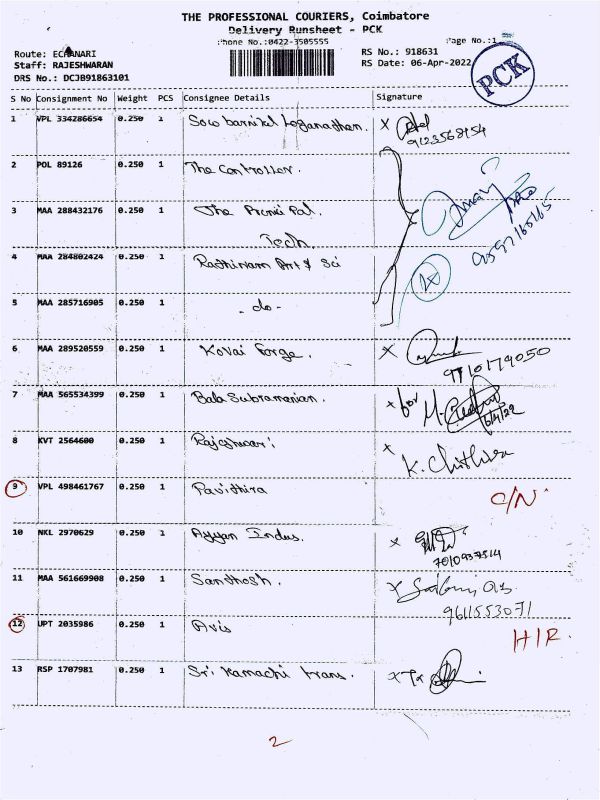 THE PROFESSIONAL COURIERS, Coimbatore
Delivery Runsheet - PCK
Phone No.:0422-3505555
Page No.:1
Route: ECHANARI
RS No.: 918631
Staff: RAJESHWARAN
RS Date: 06-Apr-2022
DRS No.: DCJB91863101
PCK
S No Consignment No Weight PCS Consignee Details Signature
1 VPL 334286654 0.250 1
9123568454
2 POL 89126 0.250 1 The Controller.
3 MAA 288432176 0.250 1 The Principal.
Tech
9597165165
4 MAA 284802424 0.250 1 Rathinam Art & Sci
5 MAA 285716905 0.250 1 - do -
6 MAA 289520559 0.250 1 Kovai Forge.
9710179050
7 MAA 565534399 0.250 1 Bala Subramanian. for
6/4/22
8 KVT 2564600 0.250 1 Rajeshwari
9 VPL 498461767 0.250 1 Pavithra C/N
10 NKL 2970629 0.250 1 Ayyan Indus.
7010937514
11 MAA 561669908 0.250 1 Santhosh.
9611553071
12 UPT 2035986 0.250 1 Avis
13 RSP 1707981 0.250 1 Sri Kamachi trans.
2